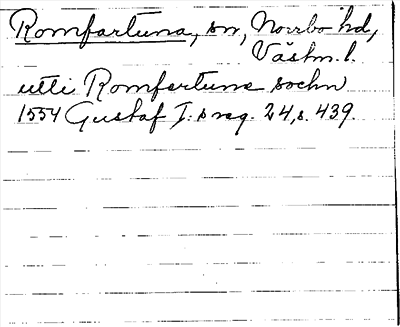 Romfartuna, sn, Norrbo hd,
Västm. l.
utti Romfertune sochn
1554 Gustaf I:s reg. 24, s. 439.